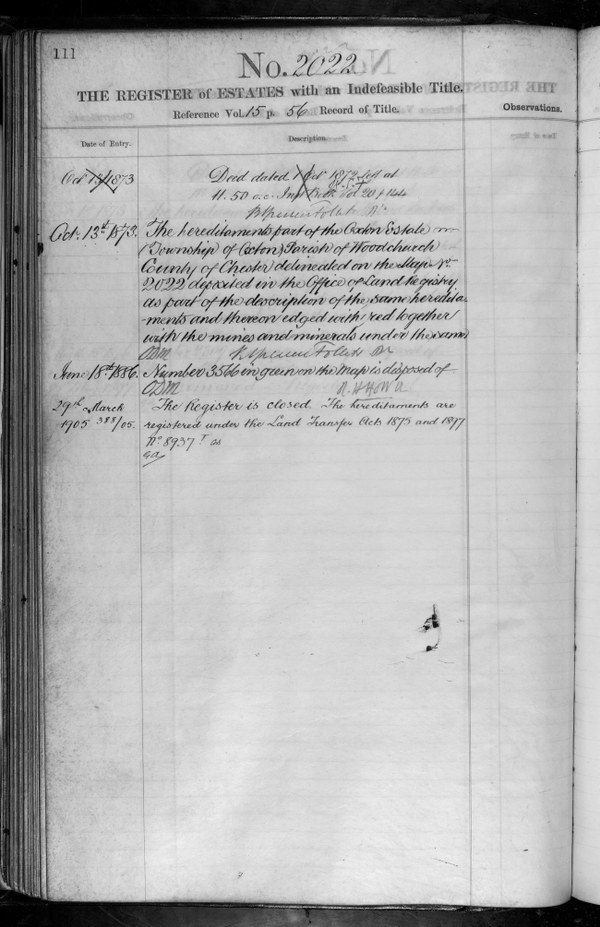 111
No. 2022
THE REGISTER of ESTATES with an Indefeasible Title.
Reference Vol. 15 p. 56 Record of Title.
Observations.
Date of Entry.
Description.
Oct 13 1873
Deed dated 1 Oct 1872 left at
11.50 Vol 20 p 144
Oct. 13th 1873.
The hereditaments part of the Oxton Estate
(Township of Oxton) Parish of Woodchurch
County of Chester delineated on the Map No
2022 deposited in the Office of Land Registry
as part of the description of the same heredita-
-ments and thereon edged with red together
with the mines and minerals under the same
ODM B Spencer Follett
June 18th 1886.
Number 3566 in green on the Map is disposed of
ODM R. H. Holt
29th March
1905 388/05.
The Register is closed. The hereditaments are
registered under the Land Transfer Acts 1875 and 1897
No 8937